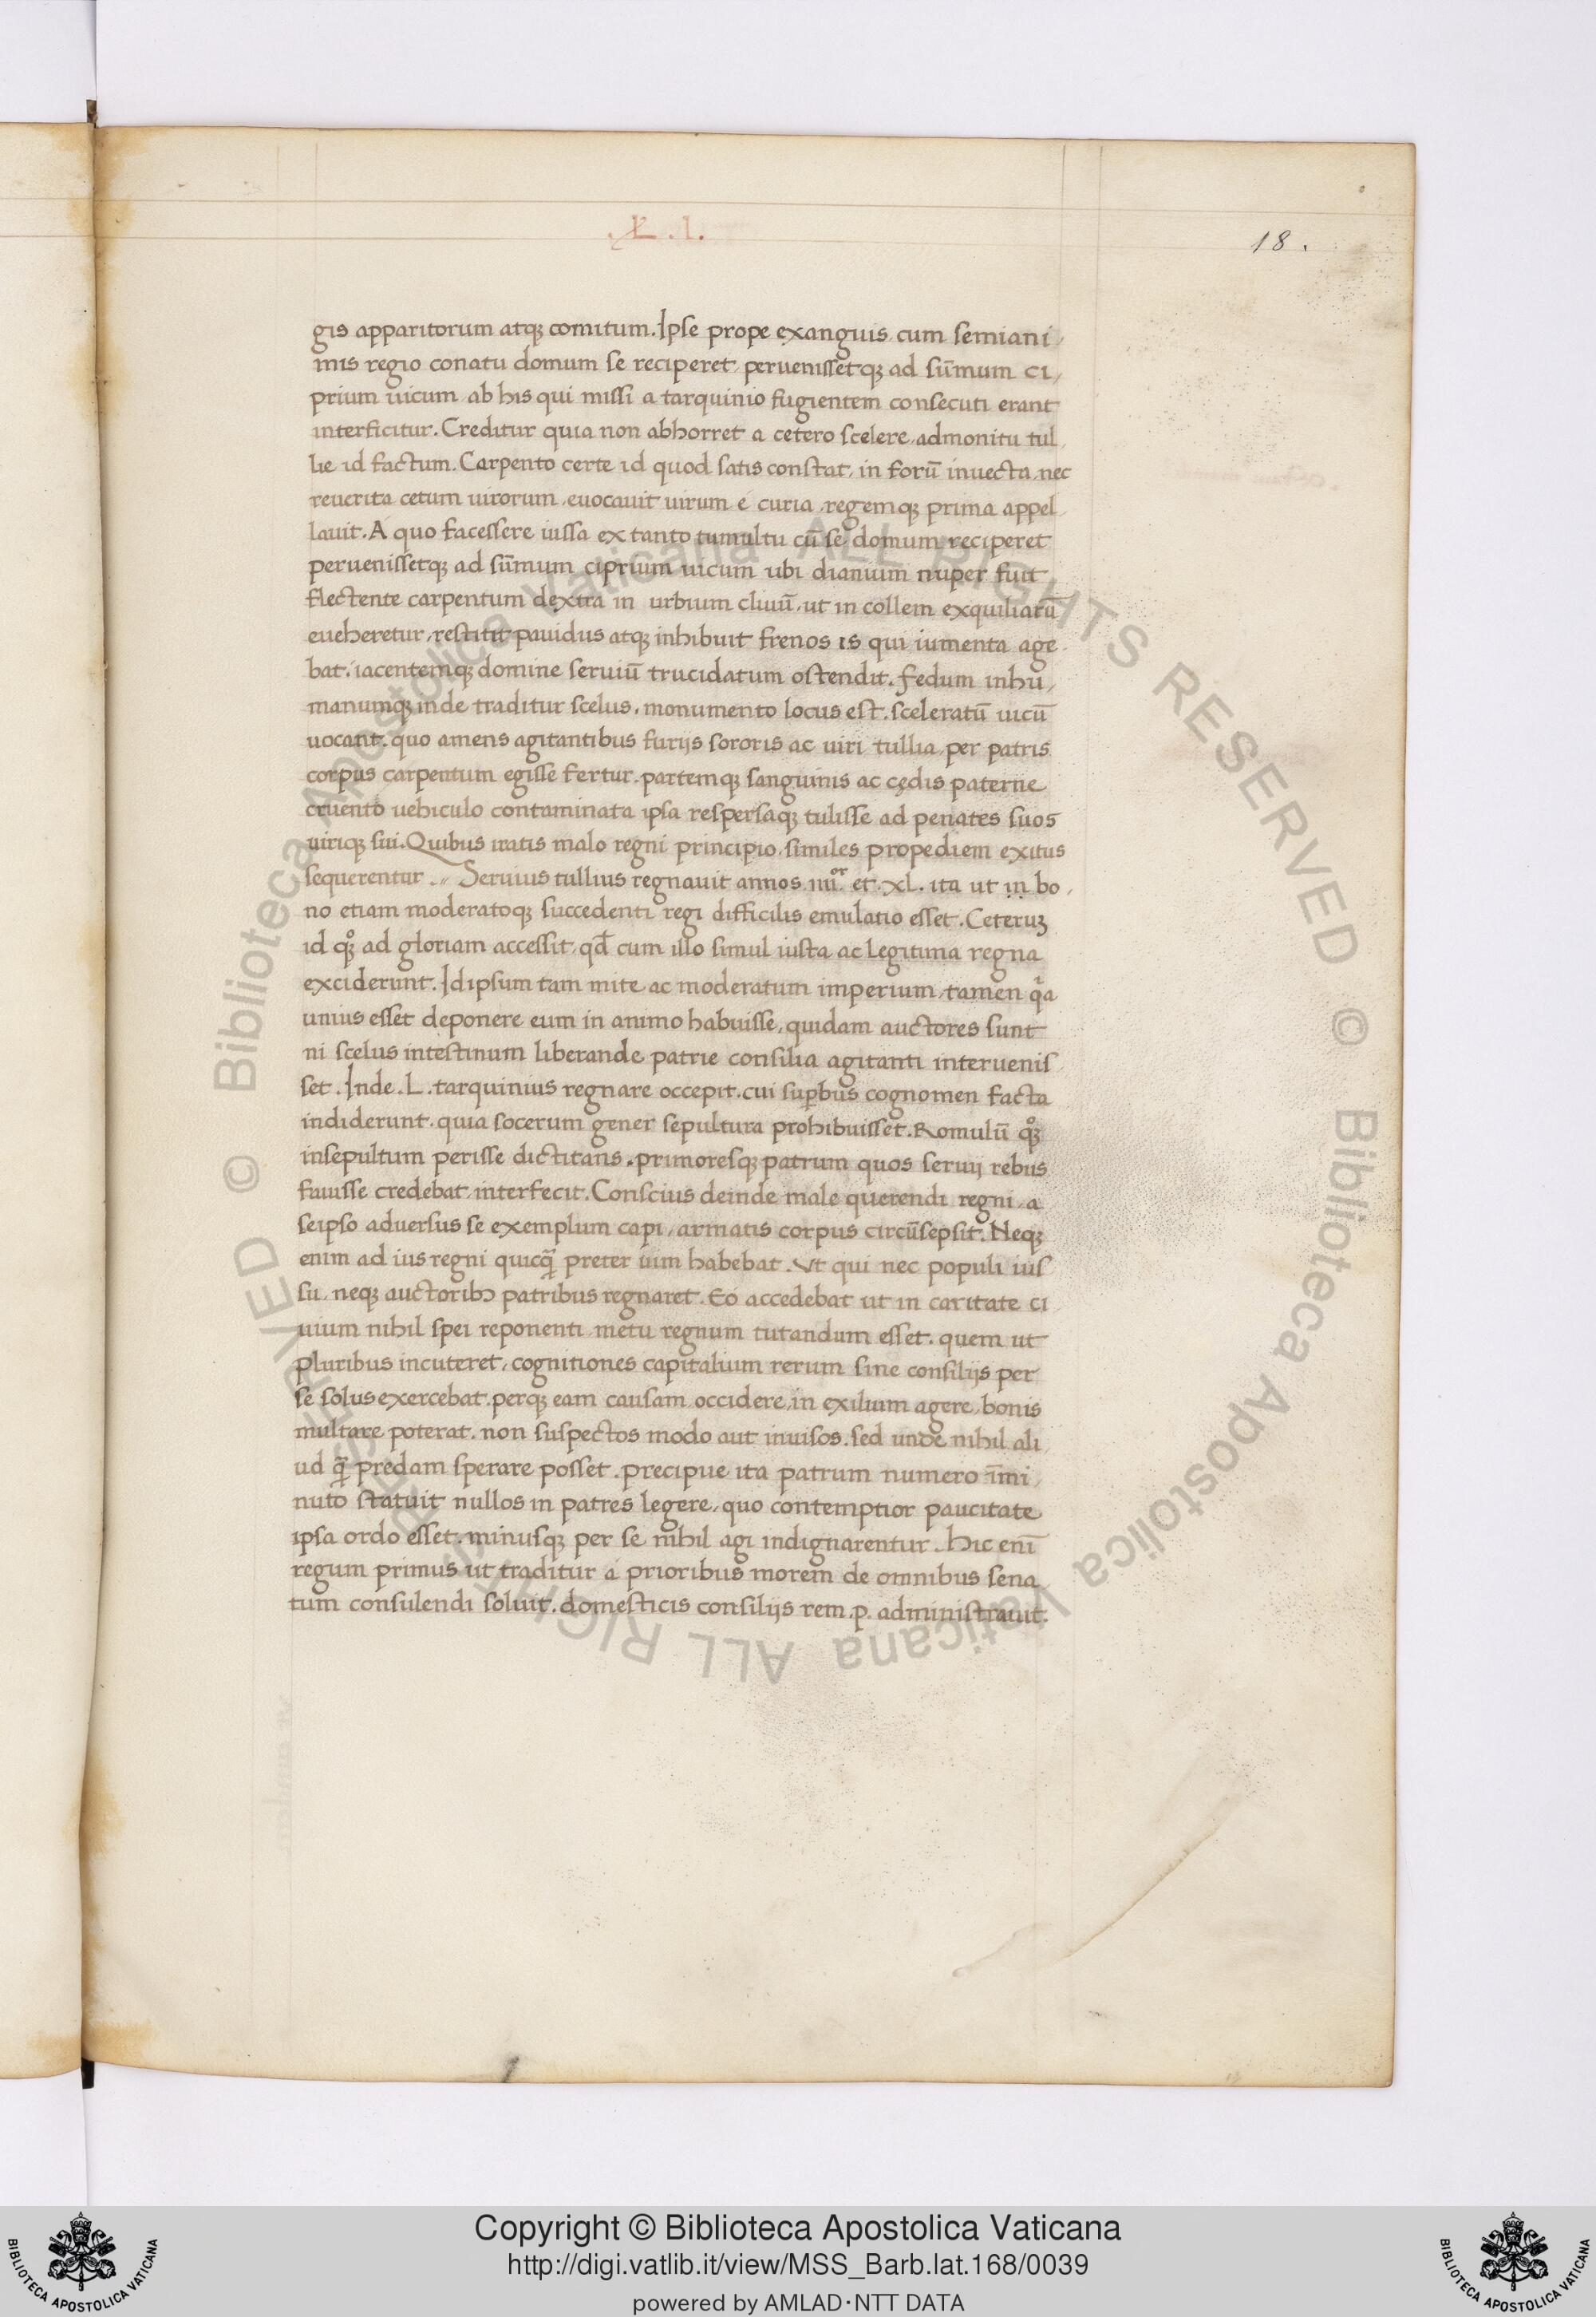 .L.I.
18.
gis apparitorum atqꝫ comitum. Ipse prope exanguis cum semiani,
mis regio conatu domum se reciperet, peruenissetqꝫ ad sum̄mum ci,
prium uicum ab his qui missi a tarquinio fugientem consecuti erant
interficitur. Creditur quia non abhorret a cetero scelere, admonitu tul,
lie id factum. Carpento certe id quod satis constat, in forū inuecta, nec
reuerita cetum uirorum, euocauit uirum e curia, regemqꝫ prima appel,
lauit. A quo facessere iussa ex tanto tumultu cū se domum reciperet
peruenissetqꝫ ad sūmum ciprium uicum ubi dianium nuper fuit
flectente carpentum dextra in urbium cliuū, ut in collem exquiliarū
eueheretur, restitit pauidus atqꝫ inhibuit frenos is qui iumenta age,
bat, iacentemqꝫ domine seruiū trucidatum ostendit. Fedum inhu,
manumqꝫ inde traditur scelus, monumento locus est. sceleratū uicū
uocant. quo amens agitantibus furijs sororis ac uiri tullia, per patris
corpus carpentum egisse fertur. partemqꝫ sanguinis ac cędis paterne
cruento uehiculo contaminata ipsa respersaqꝫ tulisse ad penates suos
uiriqꝫ sui. Quibus iratis malo regni principio, similes propediem exitus
sequerentur. Seruius tullius regnauit annos .iiii.or et .XL. ita ut in bo,
no etiam moderatoqꝫ succedenti regi difficilis emulatio esset. Ceteruꝫ
id qꝫo ad gloriam accessit, qđ cum illo simul iusta ac legitima regna
exciderunt. Id ipsum tam mite ac moderatum imperium, tamen qa
unius esset deponere eum in animo habuisse, quidam auctores sunt
ni scelus intestinum liberande patrie consilia agitanti interuenis
set. Inde .L. tarquinius regnare occepit. cui supbus cognomen facta
indiderunt. quia socerum gener sepultura prohibuisset. Romulū qꝫo
insepultum perisse dictitans. primoresqꝫ patrum quos seruij rebus
fauisse credebat, interfecit. Conscius deinde male querendi regni, a
seipso aduersus se exemplum capi, armatis corpus circūsepsit. Neqꝫ
enim ad ius regni quicq̄ preter uim habebat. Vt qui nec populi ius
su, neqꝫ auctoribꝫ patribus regnaret. Eo accedebat ut in caritate ci
uium nihil spei reponenti, metu regnum tutandum esset. quem ut
pluribus incuteret, cognitiones capitalium rerum sine consilijs per
se solus exercebat. perqꝫ eam causam, occidere, in exilium agere, bonis
multare poterat. non suspectos modo aut inuisos. sed unde nihil ali,
ud q̄ predam sperare posset. precipue ita patrum numero īmi,
nuto statuit nullos in patres legere, quo contemptior paucitate
ipsa ordo esset. minusqꝫ per se nihil agi indignarentur. Hic enī
regum primus ut traditur a prioribus morem de omnibus sena,
tum consulendi soluit. domesticis consilijs rem .p. administrauit.
© Biblioteca Apostolica Vaticana ALL RIGHTS RESERVED © Biblioteca Apostolica Vaticana ALL RIGHTS RESERVED
Copyright © Biblioteca Apostolica Vaticana
http://digi.vatlib.it/view/MSS_Barb.lat.168/0039
powered by AMLAD·NTT DATA
BIBLIOTECA APOSTOLICA VATICANA
BIBLIOTECA APOSTOLICA VATICANA